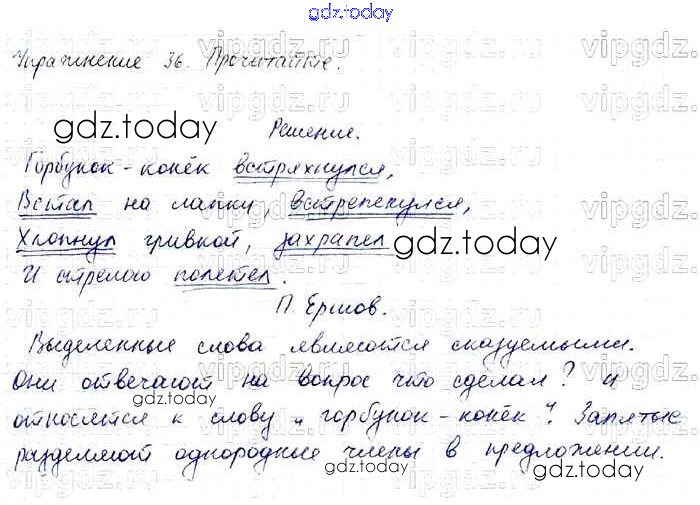 gdz.today
Упражнение 36. Прочитайте.
gdz.today
Решение.
Горбунок-конёк встряхнулся,
Встал на лапку встрепенулся,
Хлопнул гривкой, захрапел
gdz.today
И стрелою полетел.
П. Ершов.
gdz.today
Выделенные слова являются сказуемыми.
Они отвечают на вопрос что сделал? и
относятся к слову „горбунок-конёк". Запятые
разделяют однородные члены в предложении.
gdz.today
gdz.today